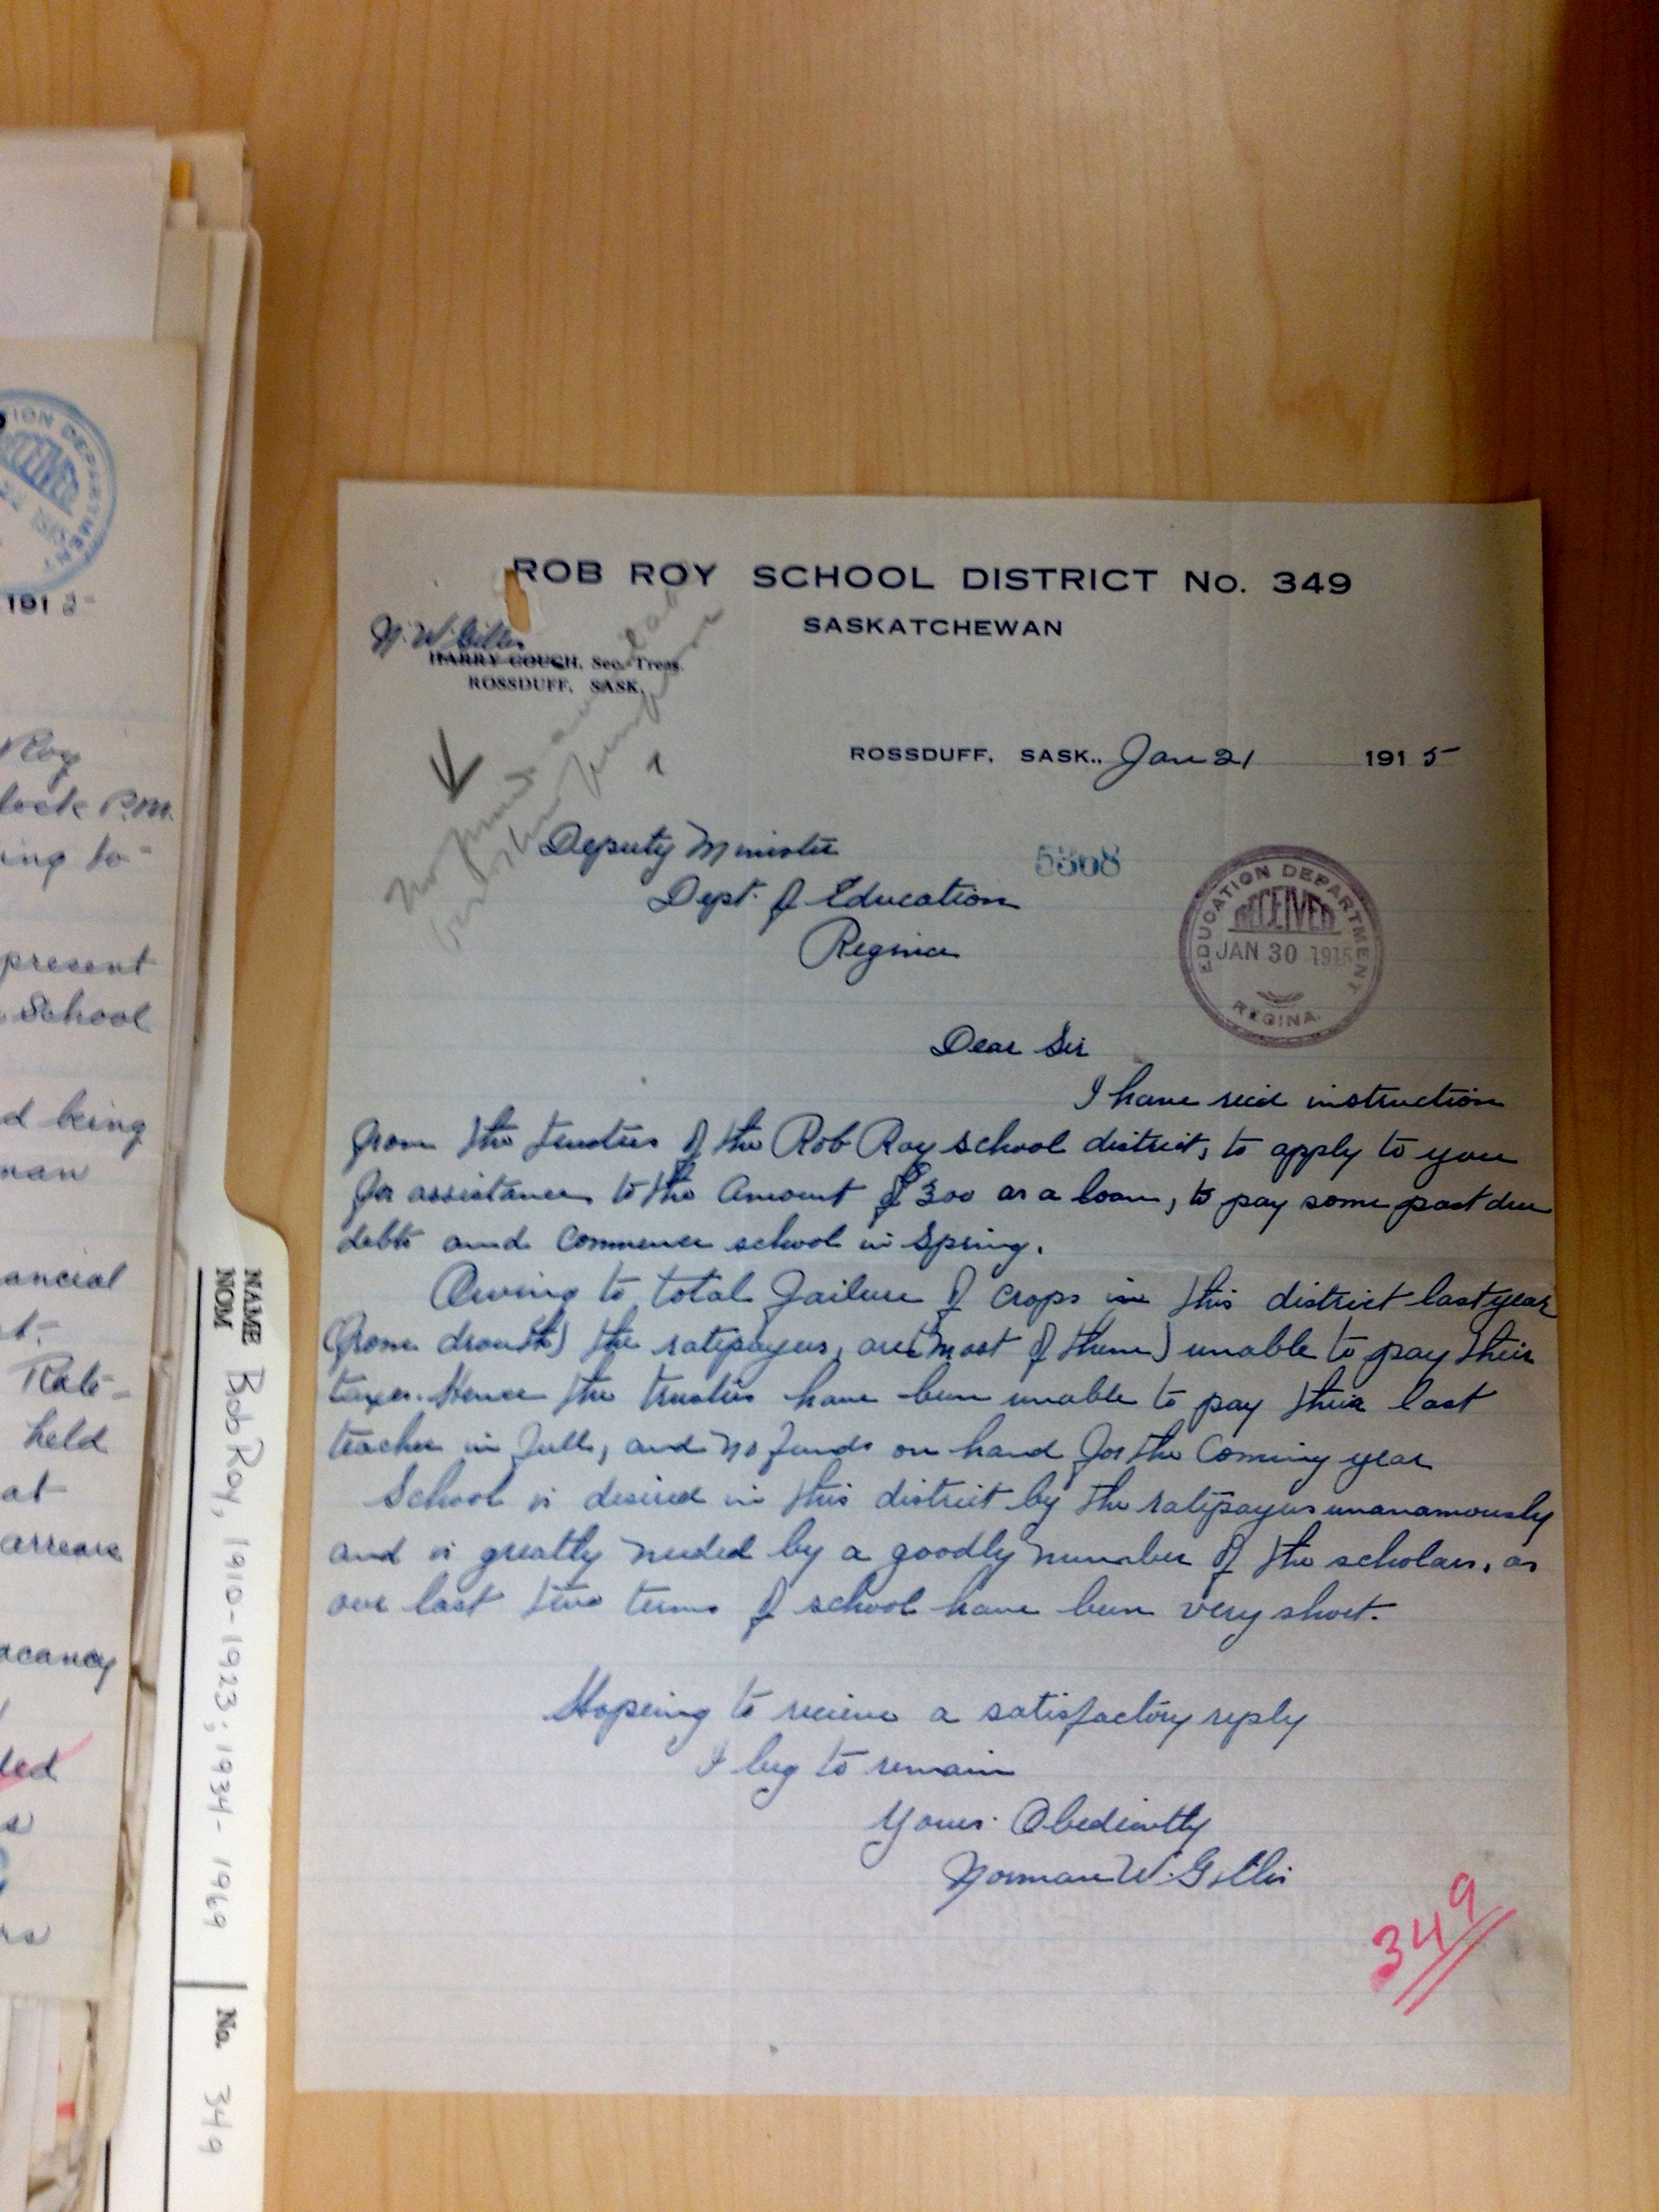 ION DEPARTMENT
RECEIVED
191
Roy
lock P.M.
ing to-
present
School
d being
man
ancial
Rate-
held
at
arrears
acancy
ded
NAME
NOM
Bob Roy, 1910-1923; 1934-1969
No. 349
ROB ROY SCHOOL DISTRICT No. 349
SASKATCHEWAN
N. W. Gillis
HARRY COUGH, Sec.-Treas.
ROSSDUFF, SASK.
No
ROSSDUFF, SASK., Jan 21 1915
Deputy Minister
Dept. of Education
Regina
5368
EDUCATION DEPARTMENT
RECEIVED
JAN 30 1915
REGINA.
Dear Sir
I have recd instruction
from the trustees of the Rob Roy school district, to apply to you
for assistance to the Amount of $300 as a loan, to pay some past due
debts and commence school in Spring.
Owing to total failure of crops in this district last year
(from drouth) the ratepayers, are (most of them) unable to pay their
taxes. Hence the trustees have been unable to pay their last
teacher in full, and no funds on hand for the coming year
School is desired in this district by the ratepayers unanamously
and is greatly needed by a goodly number of the scholars, as
our last two terms of school have been very short.
Hopeing to recieve a satisfactory reply
I beg to remain
Yours Obediently
Norman W. Gillis
349